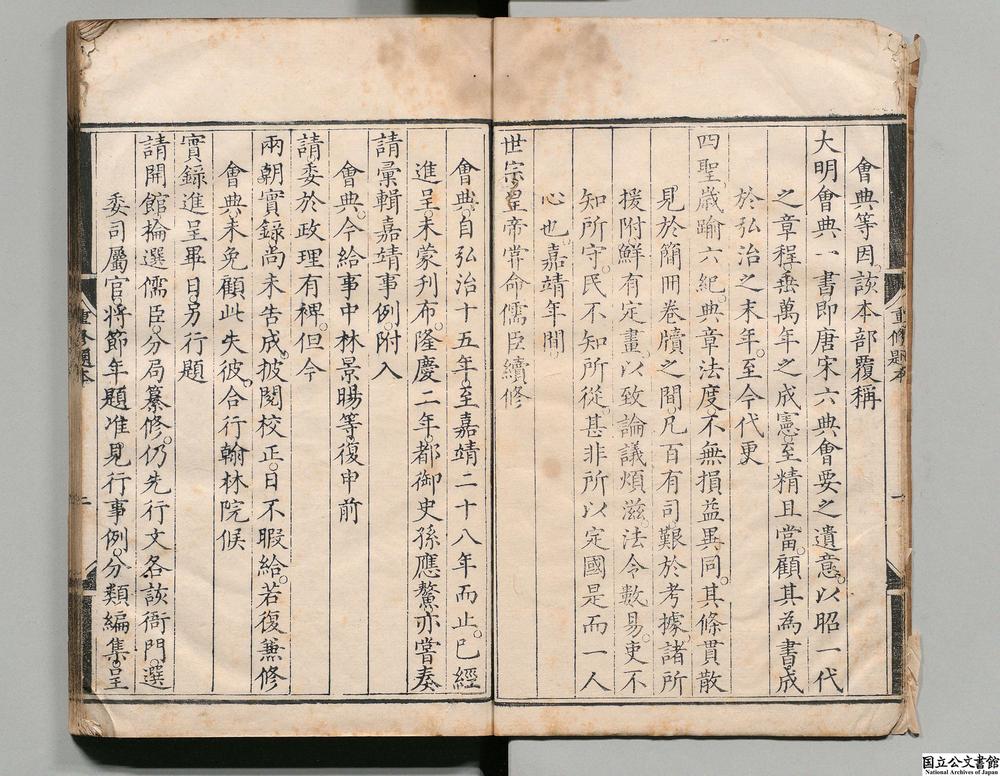 會典等因。該本部覆稱
大明會典一書即唐宋六典會要之遺意。以昭一代
之章程。垂萬年之成憲。至精且當。顧其為書。成
於弘治之末年。至今代更
四聖。歲踰六紀。典章法度。不無損益異同。其條貫散
見於簡冊卷牘之間。凡百有司。艱於考據。諸所
援附。鮮有定畫。以致論議煩滋。法令數易。吏不
知所守。民不知所從。甚非所以定國是而一人
心也。嘉靖年間。
世宗皇帝常命儒臣續修
會典。自弘治十五年。至嘉靖二十八年而止。已經
進呈。未蒙刊布。隆慶二年。都御史孫應鰲亦嘗奏
請彙輯嘉靖事例。附入
會典。今給事中林景暘等。復申前
請。委於政理有裨。但今
兩朝實錄尚未告成。披閱校正。日不暇給。若復兼修
會典。未免顧此失彼。合行翰林院候
實錄進呈畢日。另行題
請開館。掄選儒臣。分局纂修。仍先行文各該衙門。選
委司屬官。將節年題准見行事例。分類編集。呈
重修題本
一
重修題本
二
国立公文書館
National Archives of Japan